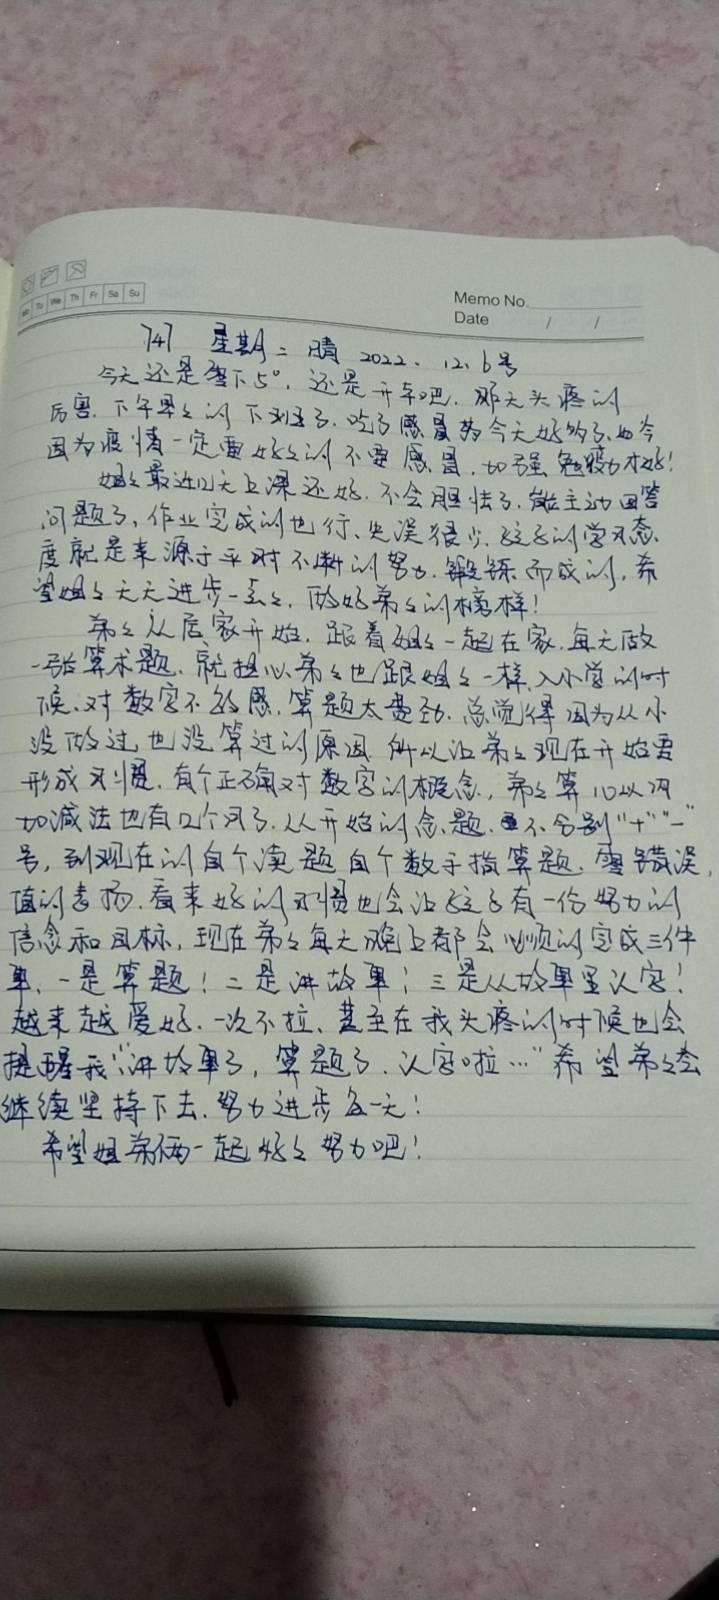 Mo Tu We Th Fr Sa Su
Memo No.
Date / /
747 星期二 晴 2022.12.6号
今天还是零下5°，还是开车吧，昨天头疼的
厉害，下午早々的下班了，吃了感冒药今天好多了，如今
因为疫情一定要好々的不要感冒，加强免疫力才好！
姐々最近几天上课还好，不会胆怯了，能主动回答
问题了，作业完成的也行，失误很少，孩子的学习态
度就是来源于平时不断的努力，锻练而成的，希
望姐々天天进步一点々，做好弟々的榜样！
弟々从居家开始，跟着姐々一起在家，每天做
算术题，就担心弟々也跟姐々一样，入小学的时
候，对数字不敏感，算题太费劲，总觉得因为从小
没做过，也没算过的原因，所以让弟々现在开始要
形成习惯，有个正确对数字的概念，弟々算10以内
加减法也有几个月了，从开始的念题，不分别“+”“-”
号，到现在的自个读题自个数手指算题，零错误，
值的表扬，看来好的习惯也会让孩子有一份努力的
信念和目标，现在弟々每天晚上都会必须的完成三件
事，一是算题！二是讲故事！三是从故事里认字！
越来越爱好，一次不拉，甚至在我头疼的时候也会
提醒我“讲故事了，算题了，认字啦…”希望弟々会
继续坚持下去，努力进步每一天！
希望姐弟俩一起好々努力吧！